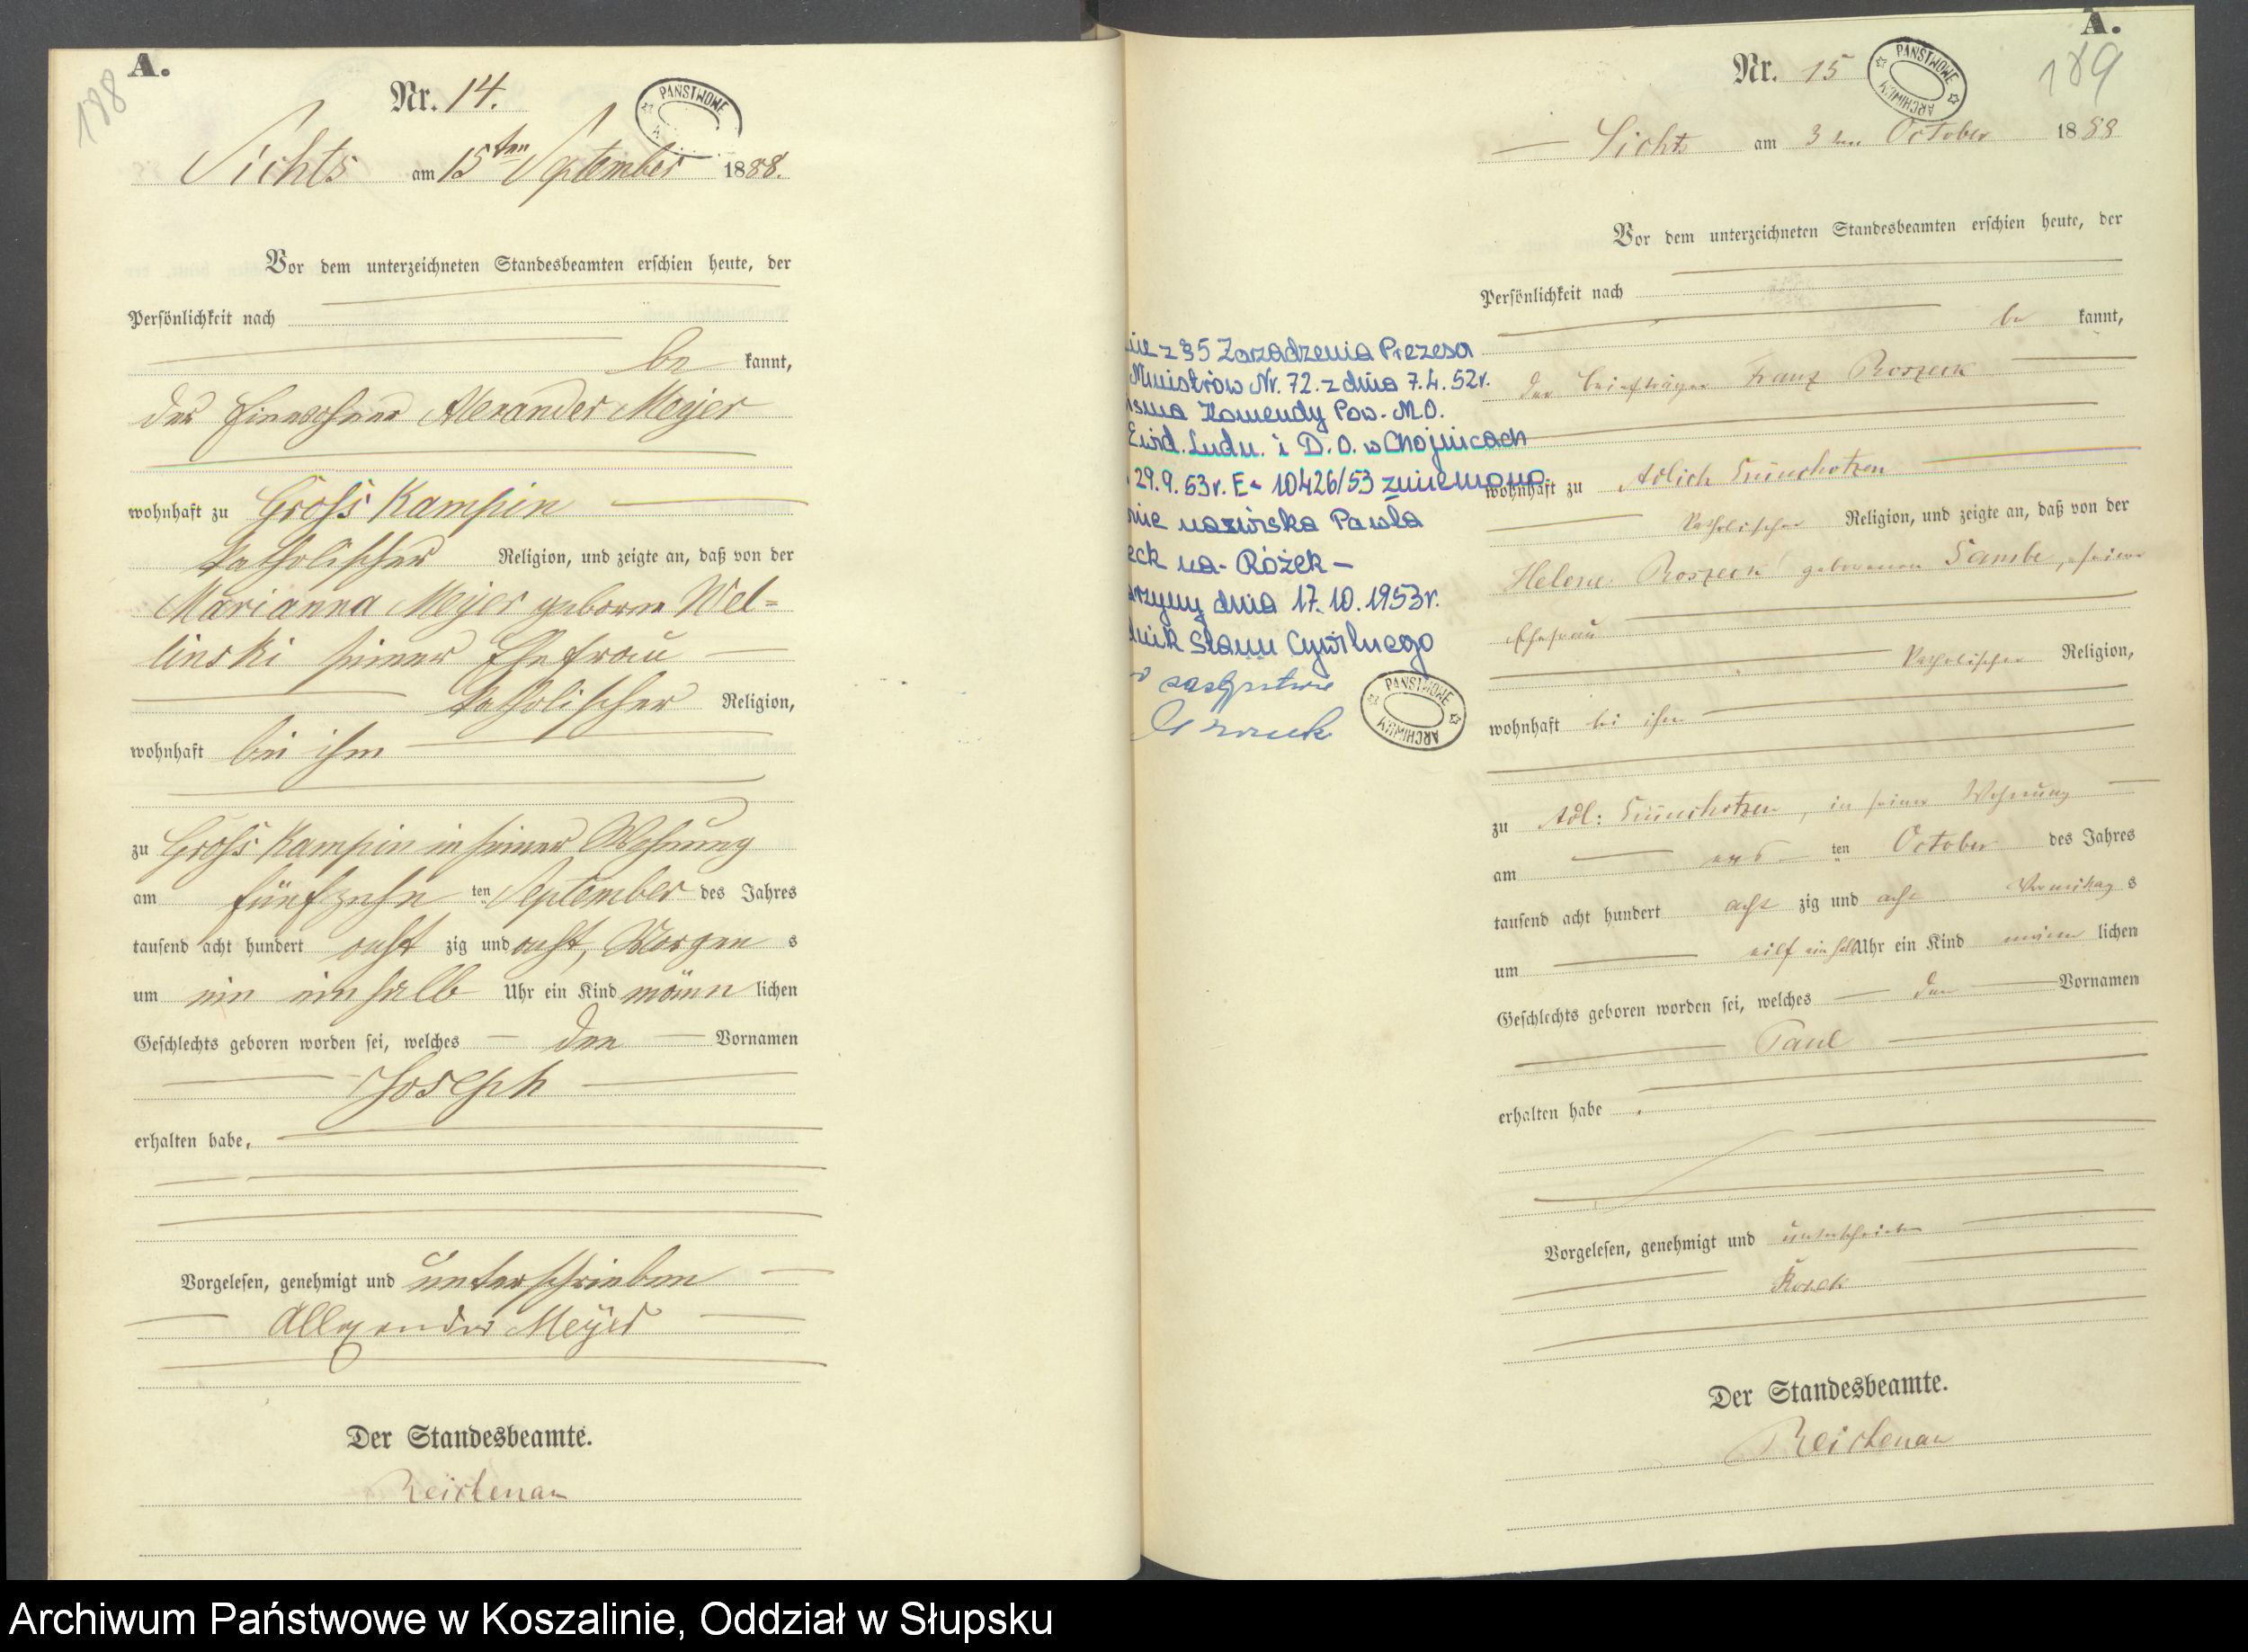 188
A.
Nr. 14.
PAŃSTWOWE
Lichts am 15ten September 1888.
Vor dem unterzeichneten Standesbeamten erschien heute, der
Persönlichkeit nach
be kannt,
der Einwohner Alexander Meyer
wohnhaft zu Gross Kampin
katholischer Religion, und zeigte an, daß von der
Marianna Meyer geborne Wel=
linski seiner Ehefrau
katholischer Religion,
wohnhaft bei ihm
zu Gross Kampin in seiner Wohnung
am fünfzehn ten September des Jahres
tausend acht hundert acht zig und acht, Morgen s
um ein halb Uhr ein Kind männ lichen
Geschlechts geboren worden sei, welches den Vornamen
Joseph
erhalten habe,
Vorgelesen, genehmigt und unterschrieben
Allexander Meyer
Der Standesbeamte.
Reichenau
A.
189
Nr. 15
PAŃSTWOWE ARCHIWUM
Lichts am 3ten October 1888
Vor dem unterzeichneten Standesbeamten erschien heute, der
Persönlichkeit nach
be kannt,
der Briefträger Franz Roszeck
wohnhaft zu Adlich
katholischer Religion, und zeigte an, daß von der
Helene Roszeck geborenen seiner
Ehefrau
katholischer Religion,
wohnhaft bei ihm
zu Adl: in seiner Wohnung
am ten October des Jahres
tausend acht hundert acht zig und acht Vormittag s
um eilf ein halb Uhr ein Kind männ lichen
Geschlechts geboren worden sei, welches den Vornamen
Paul
erhalten habe
Vorgelesen, genehmigt und unterschrieben
Der Standesbeamte.
Reichenau
z § 5 Zarządzenia Prezesa
Ministrów Nr. 72. z dnia 7.4.52r.
Komendy Pow. M.O.
Ewid. Ludn. i D.O. w Chojnicach
29.9.53r. E- 10426/53 zmieniono
nazwiska Pawła
eck na - Różek -
dnia 17.10.1953r.
Stanu Cywilnego
PAŃSTWOWE ARCHIWUM
Archiwum Państwowe w Koszalinie, Oddział w Słupsku